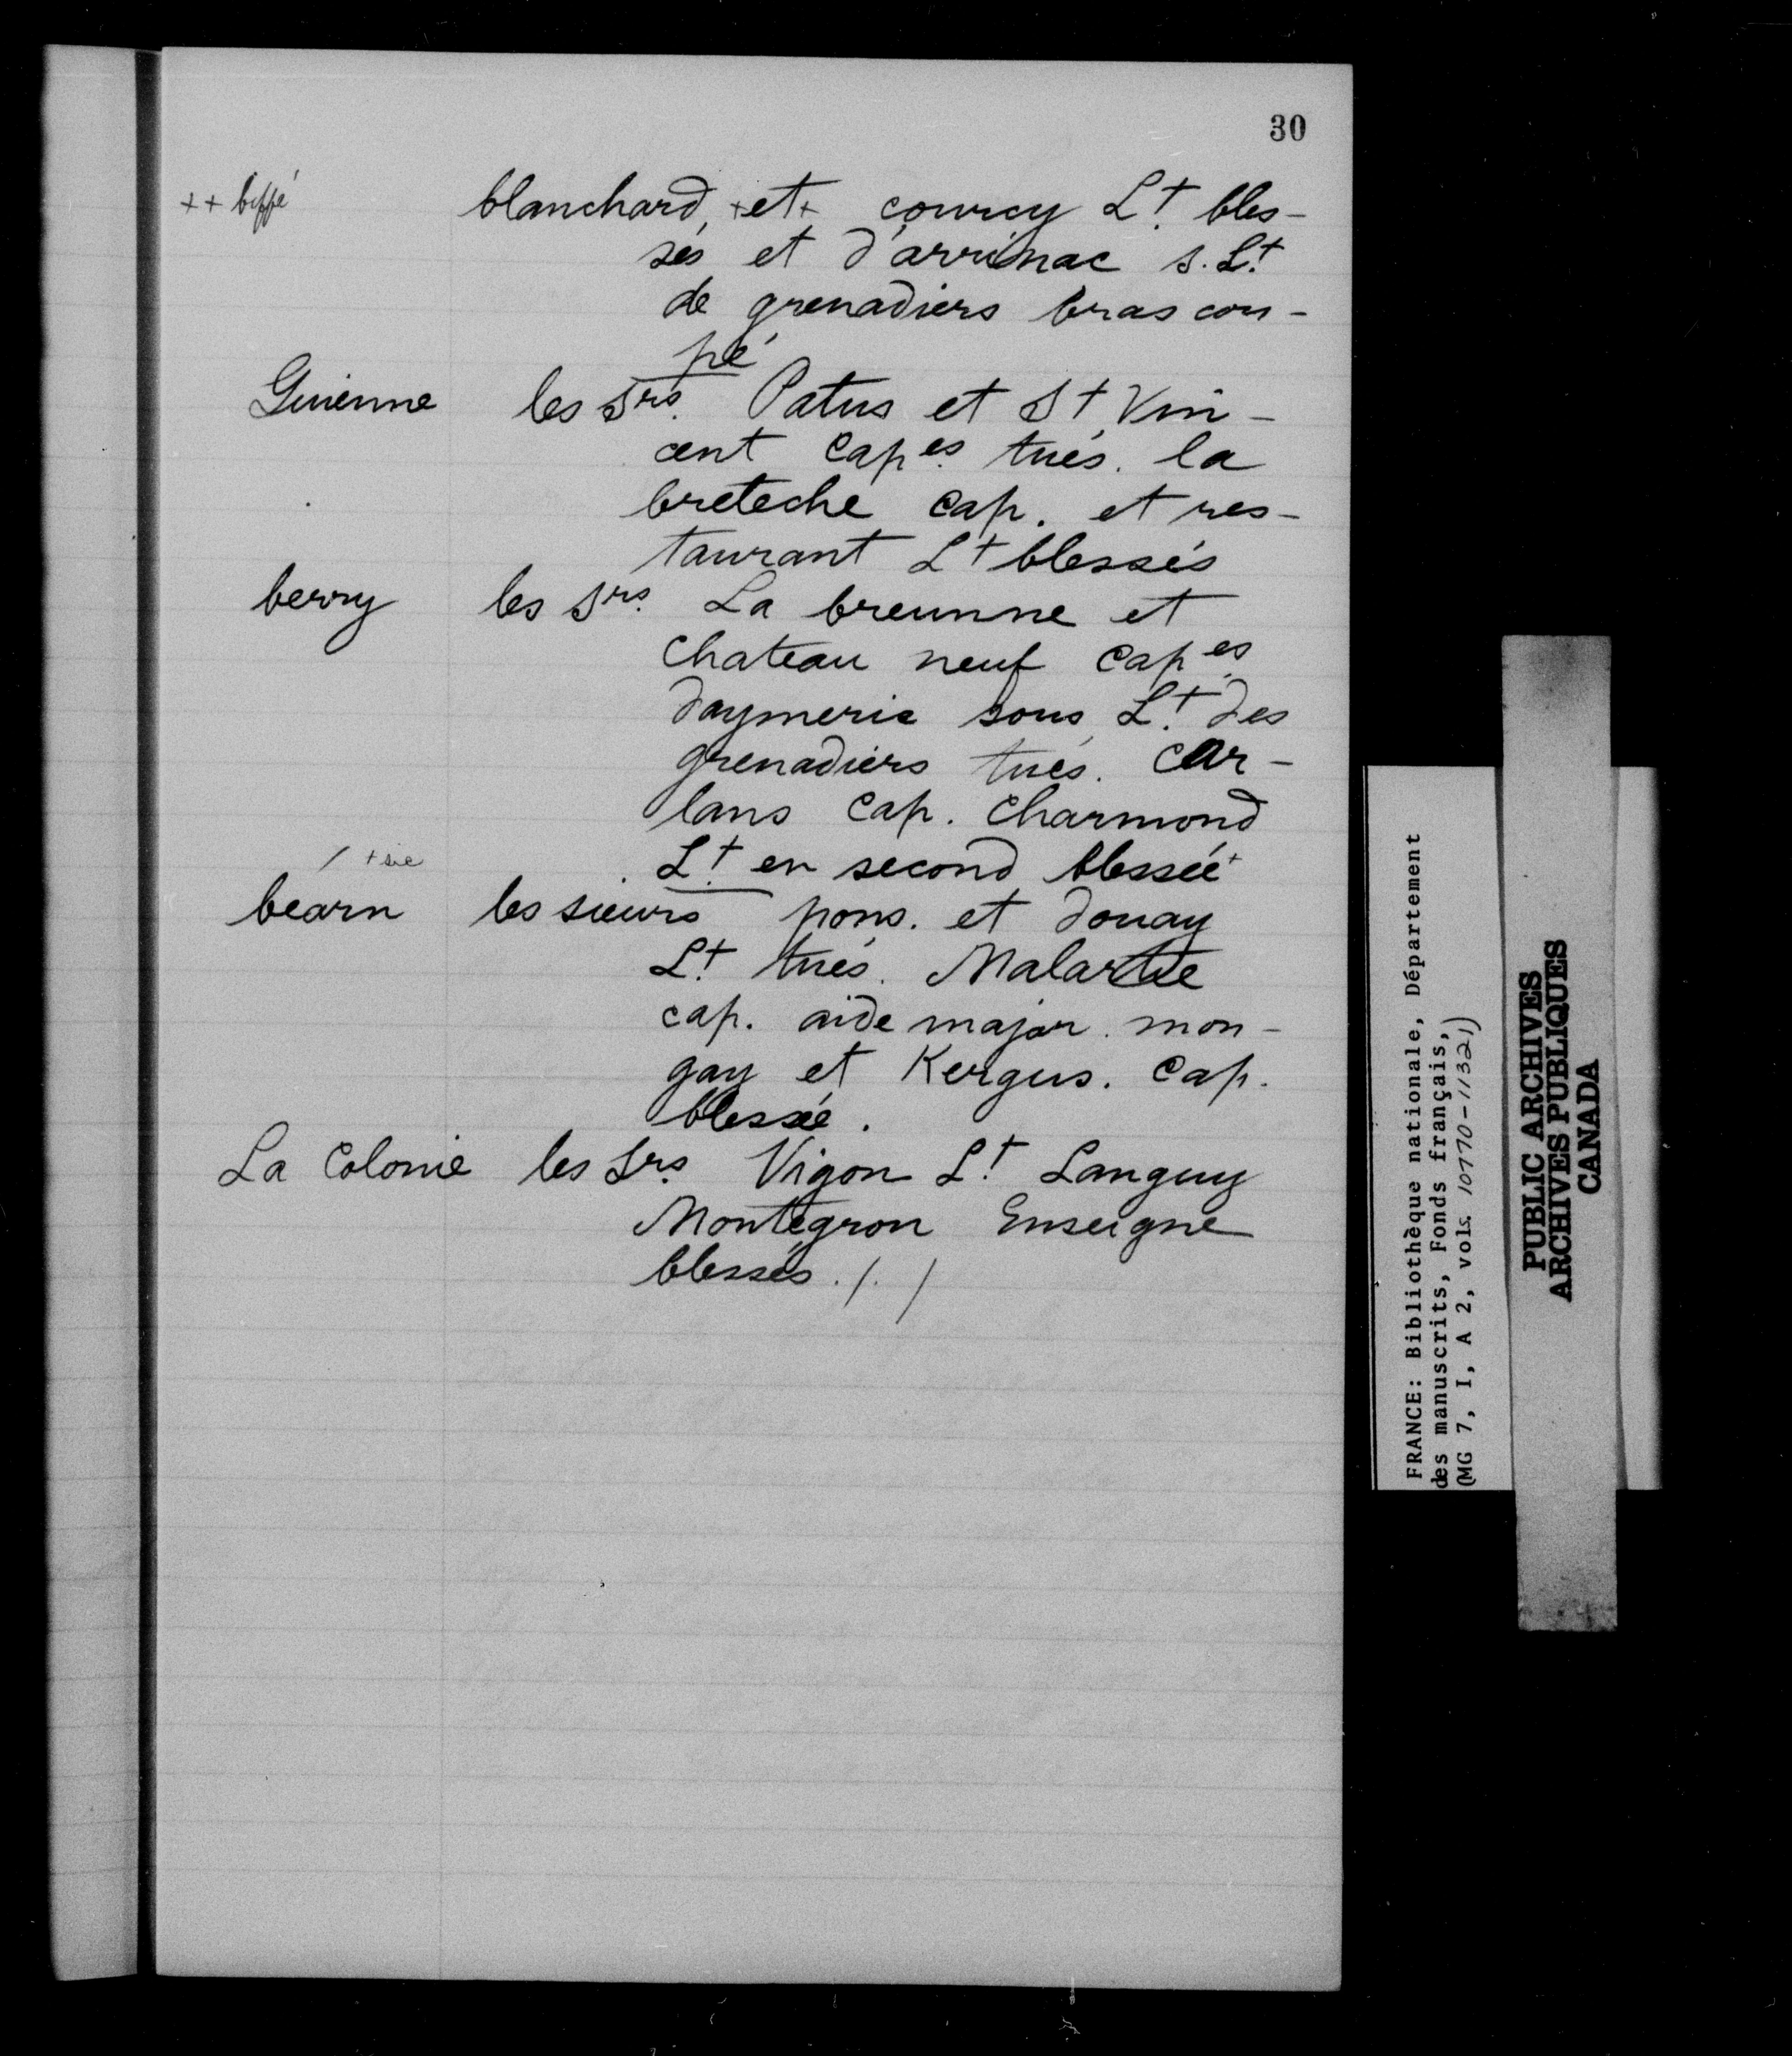 30
++ biffé
blanchard, +et+ courcy Lt. bles-
sés et d'arrimac s. Lt.
de grenadiers bras cou-
pé
Guienne les Srs. Patus et St Vin-
cent Capes. tués. la
breteche Cap. et res-
taurant Lt blessés
berry les Srs. La breunne et
Chateau neuf Capes.
daymeric sous Lt. des
grenadiers tués. Car-
lans Cap. Charmond
Lt. en second blessée+
/ + sic
béarn les sieurs pons. et douay
Lt. tués. Malartie
cap. aide major. mon-
gay et Kergus. Cap.
blessée.
La Colonie les Srs. Vigon Lt. Languy
Montegron Enseigne
blessés./. /
FRANCE: Bibliothèque nationale, Département
des manuscrits, Fonds français,
(MG 7, I, A 2, vols. 10770-11321)
PUBLIC ARCHIVES
ARCHIVES PUBLIQUES
CANADA